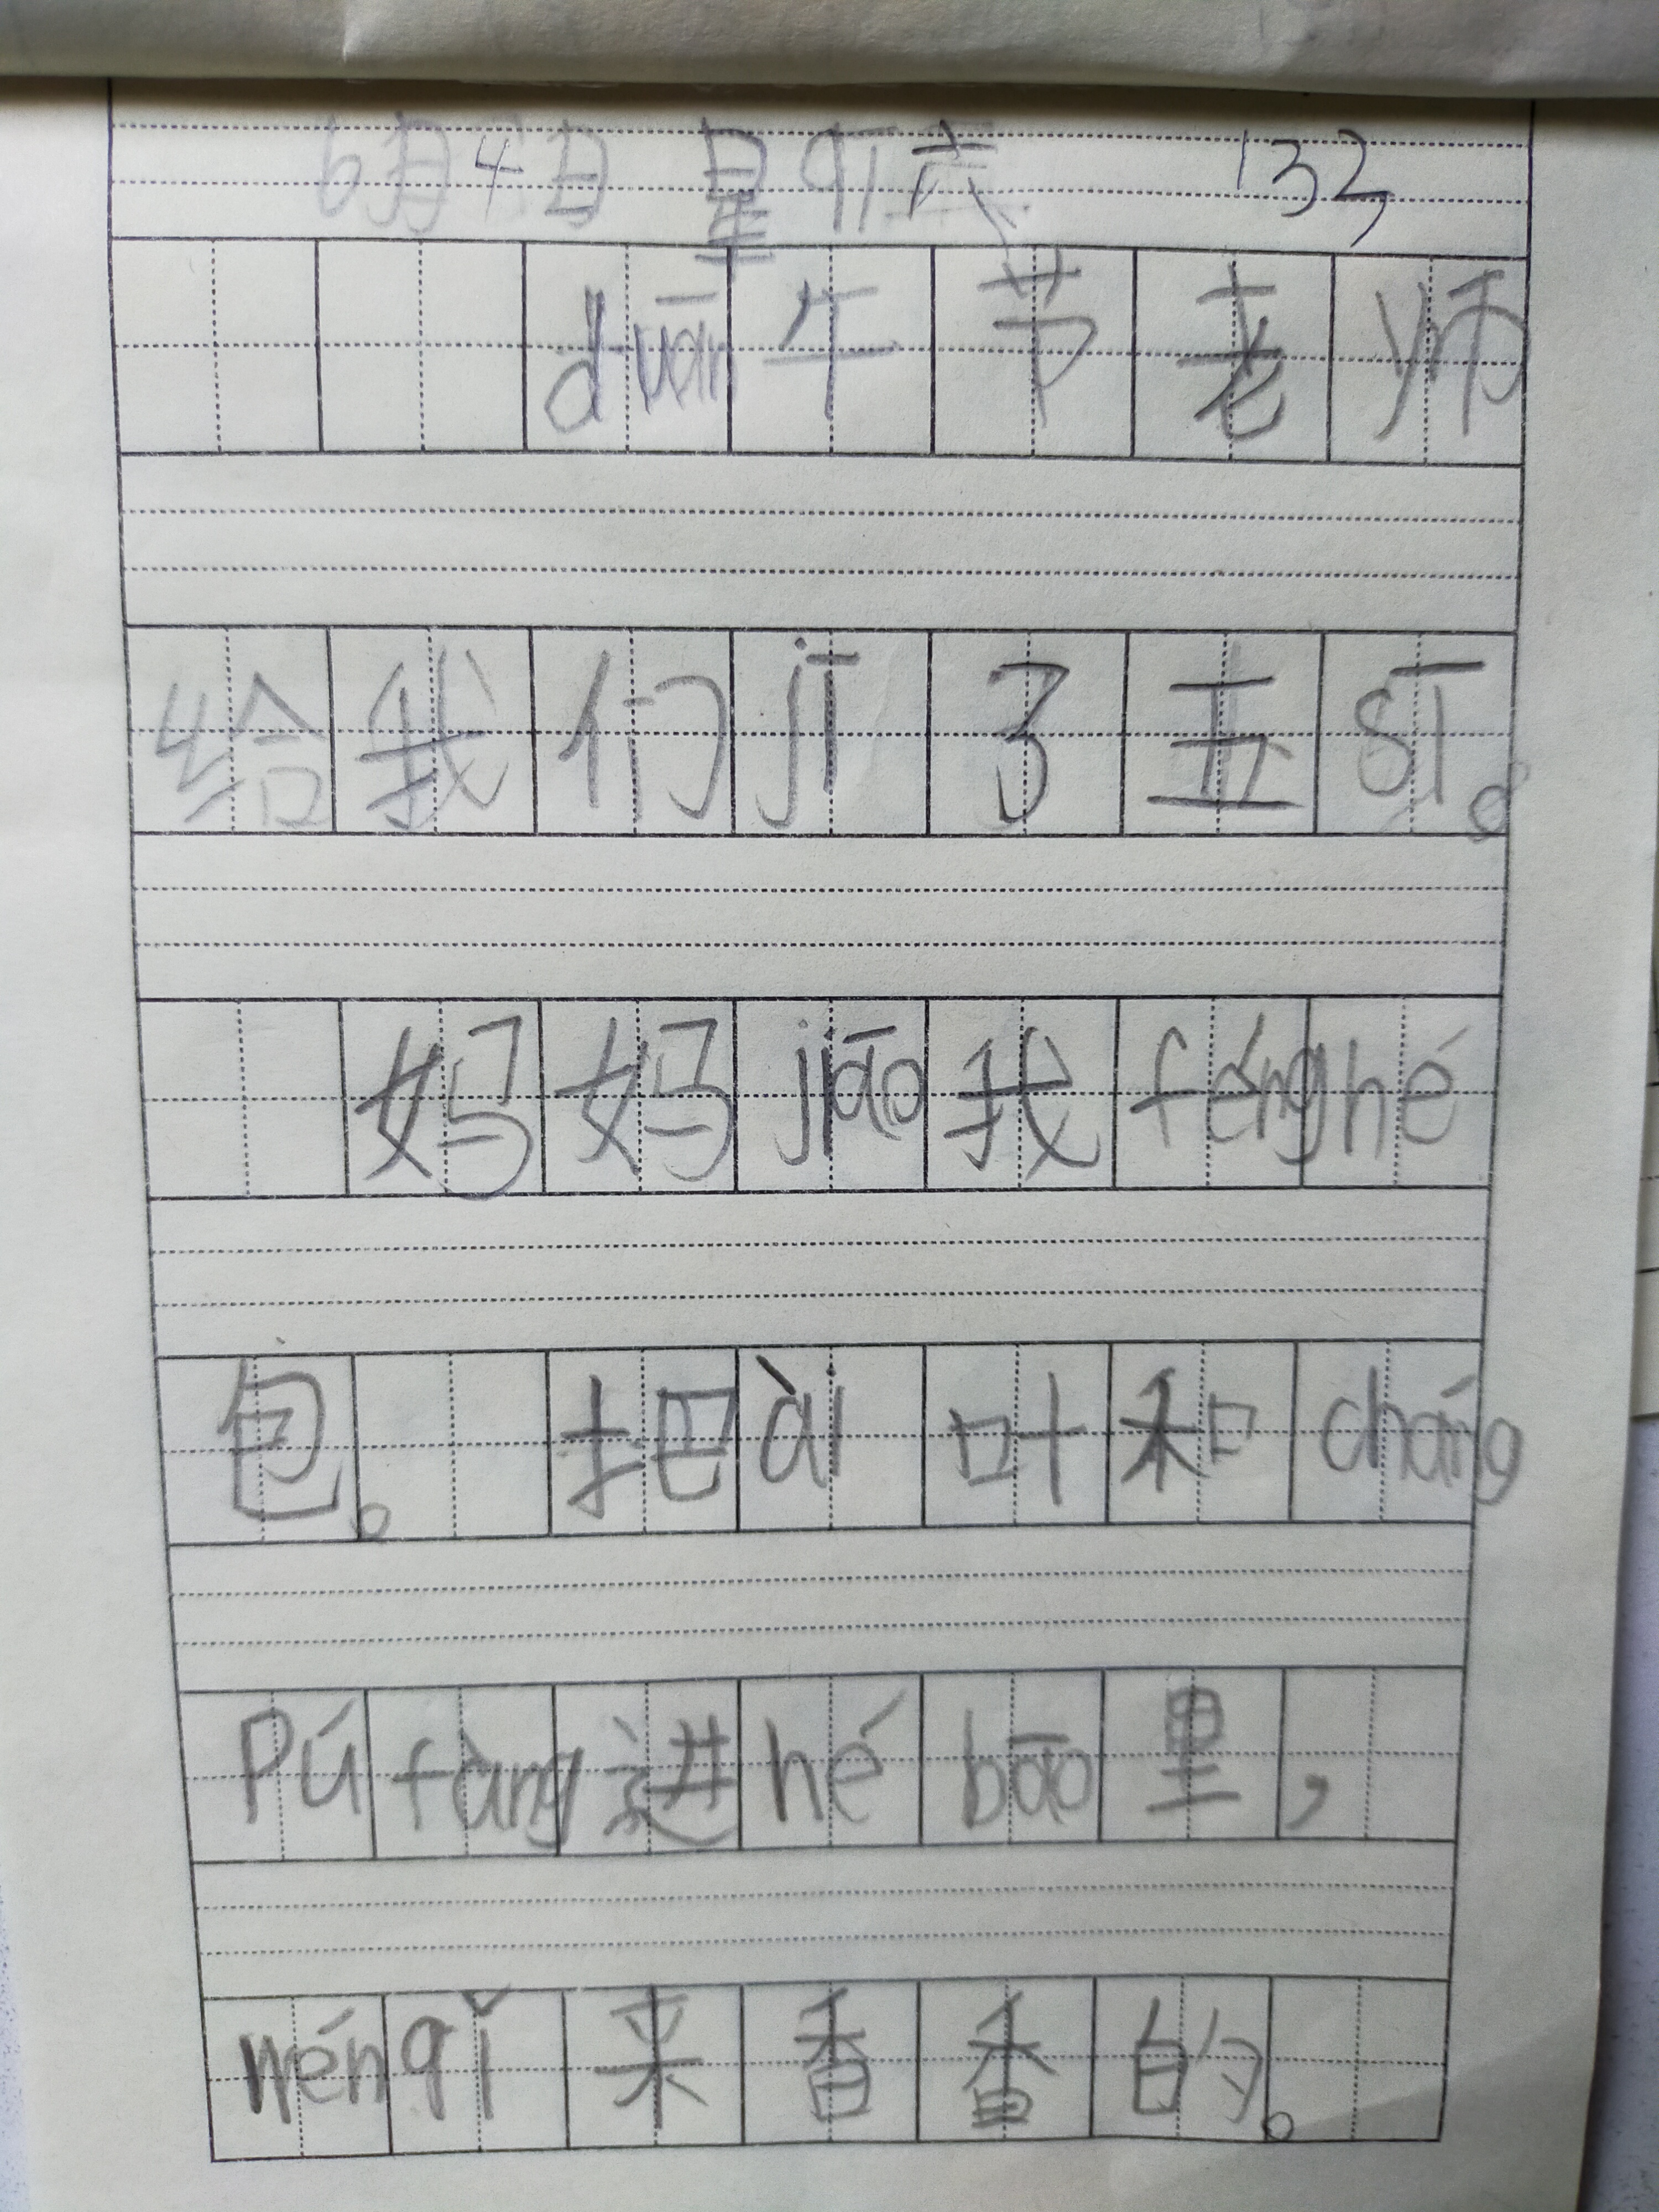 6月4日 星qī六 132
duān午节老师
给我们jī了五sī。
妈妈jiāo我fénghé
包。 把ài叶和cháng
Pú fàng进hé bāo里，
wénqǐ来香香的。